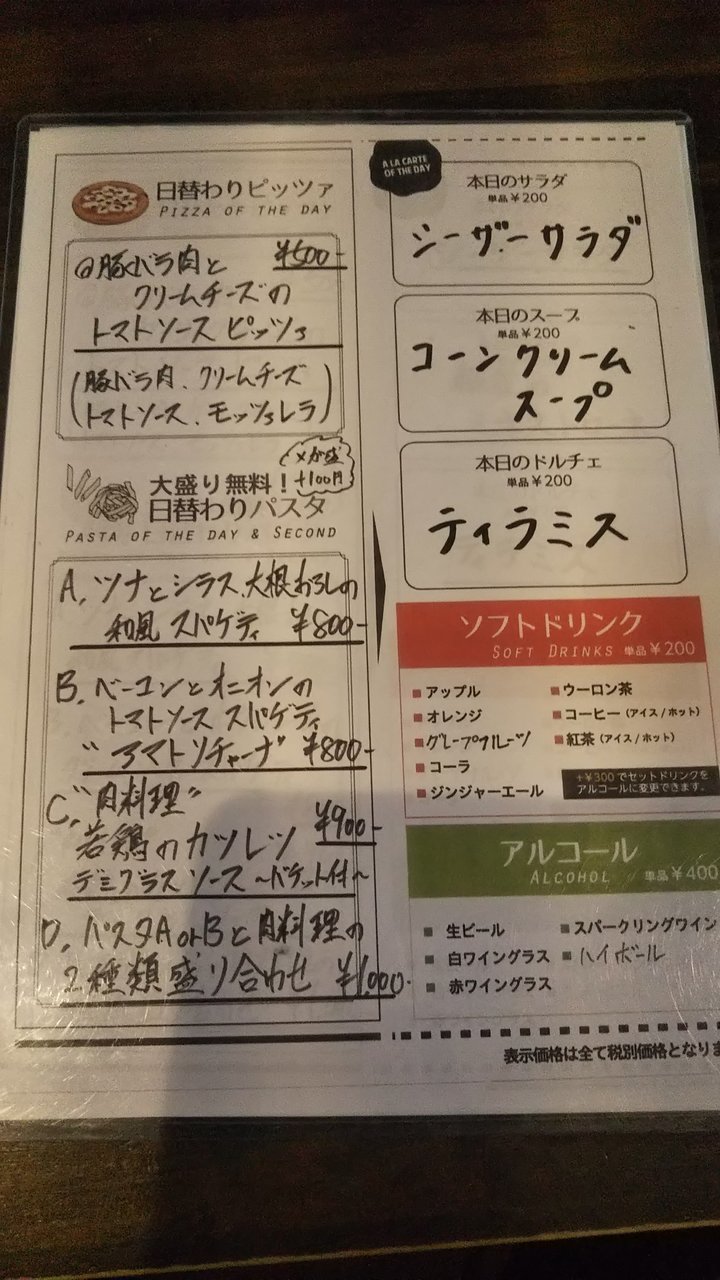 日替わりピッツァ
PIZZA OF THE DAY
@豚バラ肉と ¥500-
クリームチーズの
トマトソース ピッツァ
(豚バラ肉、クリームチーズ
トマトソース、モッツァレラ)
メガ盛
+100円
大盛り無料!
日替わりパスタ
PASTA OF THE DAY & SECOND
A、ツナとシラス、大根おろしの
和風 スパゲティ ¥800-
B、ベーコンとオニオンの
トマトソース スパゲティ
"アマトリチャーナ" ¥800-
C、"肉料理"
若鶏のカツレツ ¥900-
デミグラスソース 〜バゲット付〜
D、パスタAorBと肉料理の
2種類盛り合わせ ¥1,000-
A LA CARTE
OF THE DAY
本日のサラダ
単品¥200
シーザーサラダ
本日のスープ
単品¥200
コーンクリーム
スープ
本日のドルチェ
単品¥200
ティラミス
ソフトドリンク
SOFT DRINKS 単品¥200
■アップル
■オレンジ
■グレープフルーツ
■コーラ
■ジンジャーエール
■ウーロン茶
■コーヒー(アイス/ホット)
■紅茶(アイス/ホット)
+¥300でセットドリンクを
アルコールに変更できます。
アルコール
ALCOHOL 単品¥400
■生ビール
■白ワイングラス
■赤ワイングラス
■スパークリングワイン
■ハイボール
表示価格は全て税別価格となりま